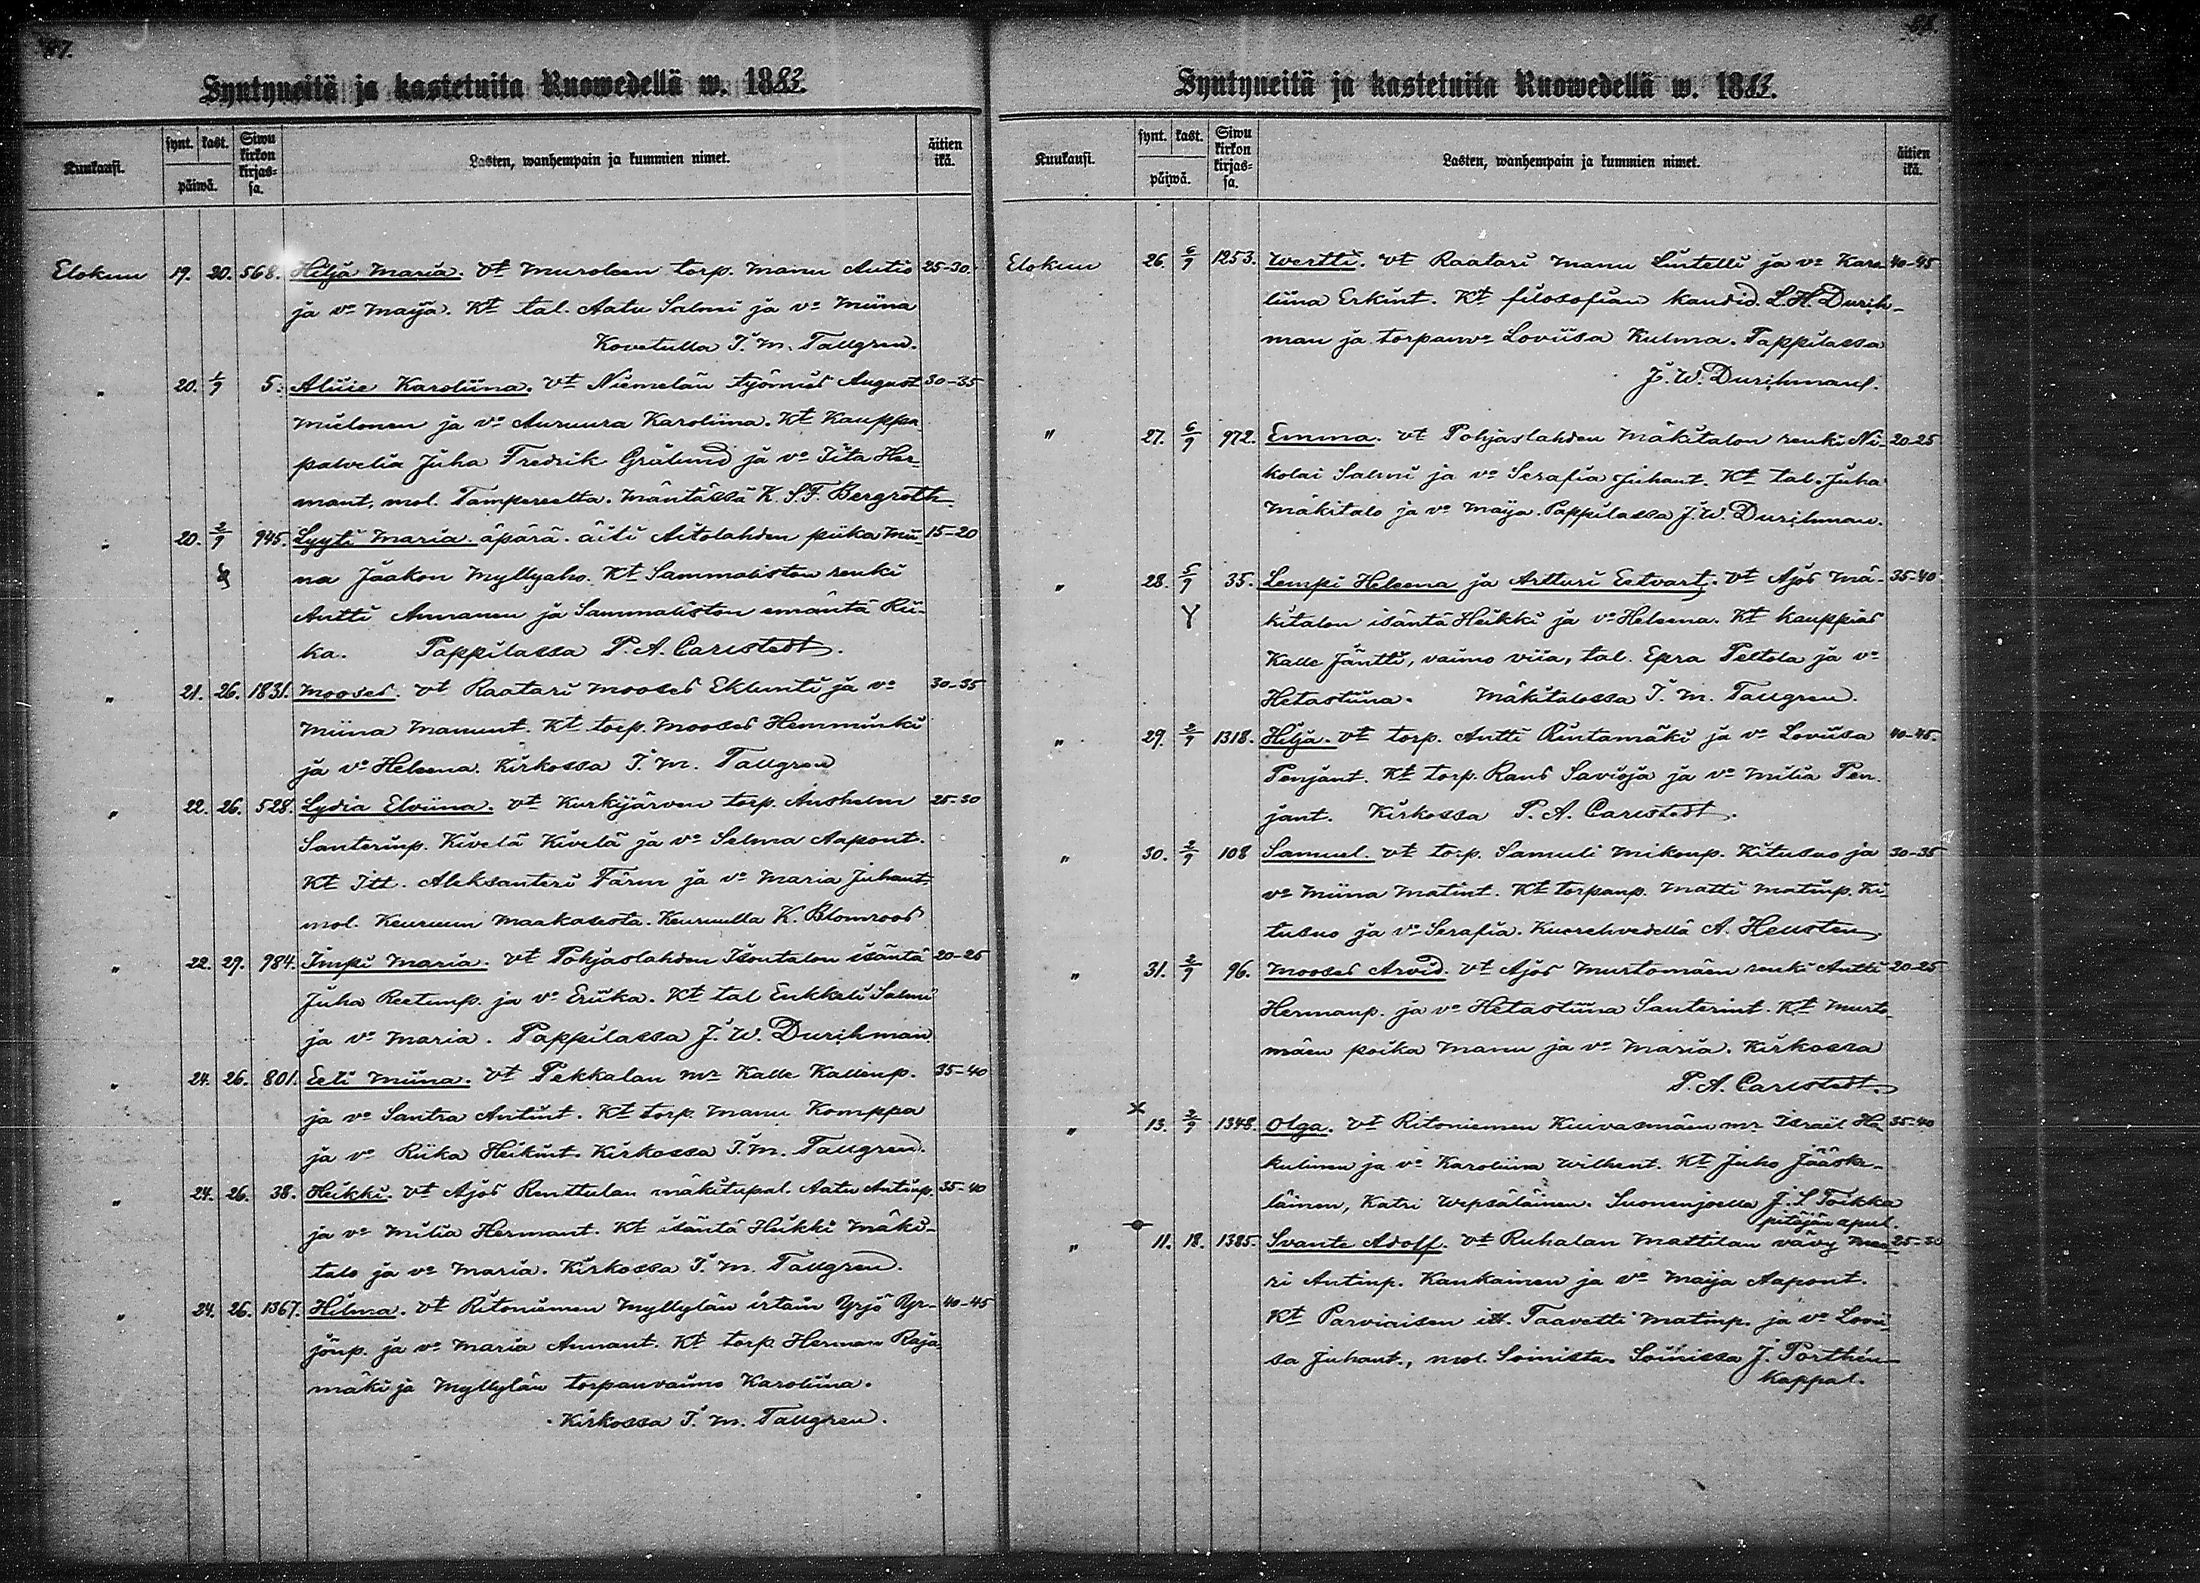 47.
Syntyneitä ja kastetuita Ruowedellä w. 1883.
Kuukausi. synt. kast. päiwä. Siwu kirkon kirjas=sa. Lasten, wanhempain ja kummien nimet. äitien ikä.
Elokuu 19. 20. 568. Hilja Maria. vt Muroleen torp. Manu Autio 25-30.
ja vo Maija. Kt tal. Aatu Salmi ja vo Miina
Kovetulla I. M. Tallgren.
" 20. 1/9 5. Aliie Karoliina. Vt Niemelän työmies August 30-35
Mielonen ja vo Auruura Karoliina. Kt Kauppa
palvelia Juha Fredrik Grälund ja vo Iita Her
mant, mol. Tampereelta. Mäntässä K. S. F. Bergroth
" 20. 2/9 945. Lyyti Maria. äpärä. äiti Aitolahden piika Mii- 15-20
na Jaakon Myllyaho. Kt Sammaliston renki
Antti Annanen ja Sammaliston emäntä Rii-
ka. Pappilassa P. A. Carlstedt.
" 21. 26. 1831. Mooses. vt Raatari Mooses Eklunti ja vo 30-35
Miina Manunt. Kt torp. Mooses Hemminki
ja vo Heleena. Kirkossa I. M. Tallgren
" 22. 26. 528. Lydia Elviina. vt Kurkijärven torp. Anshelm 25-30
Santerinp. Kivelä Kivelä ja vo Selma Aapont.
Kt Itt. Aleksanteri Färm ja vo Maria Juhant.
mol. Keuruun Maakasesta. Keuruulla K. Blomroos
" 22. 29. 984. Impi Maria. vt Pohjaslahden Isontalon isäntä 20-25
Juha Reetunp. ja vo Eriika. Kt tal Enkkeli Salmi
ja vo Maria. Pappilassa J. W. Durchman
" 24. 26. 801. Eeli Miina. Vt Pekkalan mr Kalle Kallenp. 35-40
ja vo Santra Antint. Kt torp. Manu Komppa
ja vo Riika Heikint. Kirkossa I. M. Tallgren.
" 24. 26. 38. Heikki. vt Ajos Renttulan mäkitupal. Aatu Antinp. 35-40
ja vo Milia Hermant. Kt isäntä Heikki Mäki-
talo ja vo Maria. Kirkossa I. M. Tallgren.
" 24. 26. 1367. Hilma. vt Ritoniemen Myllylän irtain Yrjö Yr- 40-45
jönp. ja vo Maria Annant. Kt torp. Herman Raja
mäki ja Myllylän torpanvaimo Karoliina.
Kirkossa I. M. Tallgren.
48.
Syntyneitä ja kastetuita Ruowedellä w. 1883.
Kuukausi. synt. kast. päiwä. Siwu kirkon kirjas=sa. Lasten, wanhempain ja kummien nimet. äitien ikä.
Elokuu 26. 6/9 1253. Wertti. vt Raatari Manu Lintelli ja vo Karo- 40-45
liina Erkint. Kt filosofian kandid. L. H. Durch-
man ja torpanvo Loviisa Kulma. Pappilassa
J. W. Durchman.
" 27. 6/9 972. Emma. vt Pohjaslahden Mäkitalon renki Ni- 20-25
kolai Salmi ja vo Serafia Juhant. Kt tal. Juha
Mäkitalo ja vo Maija. Pappilassa J. W. Durchman.
" 28. 5/9 35. Lempi Heleena ja Artturi Eetvart. Vt Ajos Mä- 35-40
kitalon isäntä Heikki ja vo Heleena. Kt kauppias
Kalle Jäntti, vaimo viia, tal. Epra Peltola ja vo
Hetastiina. Mäkitalossa I. M. Tallgren.
" 29. 2/9 1318. Hilja. vt torp. Antti Rintamäki ja vo Loviisa 40-45.
Penjant. Kt torp. Rans Savioja ja vo Milia Pen
jant. Kirkossa P. A. Carlstedt.
" 30. 2/9 108 Samuel. vt torp. Samuli Mikonp. Kitusuo ja 30-35
vo Miina Matint. Kt torpanp. Matti Matinp. Ki-
tusuo ja vo Serafia. Kuorehvedellä A. Hellsten.
" 31. 2/9 96. Mooses Arvid. vt Ajos Murtomäen renki Antti 20-25
Hermanp. ja vo Hetastiina Santerint. Kt Murto
mäen poika Manu ja vo Maria. Kirkossa
P. A. Carlstedt.
" × 13. 2/9 1348. Olga. vt Ritoniemen Kuivasmäen mr Israël Ha 35-40
kulinen ja vo Karoliina Wilhent. Kt Juho Jääske-
läinen, Katri Wepsäläinen. Suonenjoella J. S. Toikka
pitäjän apul.
" 11. 18. 1385. Svante Adolf. Vt Ruhalan Mattilan vävy Maa- 25-30
ri Antinp. Kankainen ja vo Maija Aapont.
Kt Parviaisen itt. Taavetti Matinp. ja vo Lovii-
sa Juhant., mol. Soinista. Soinissa J. Porthén
Kappal.